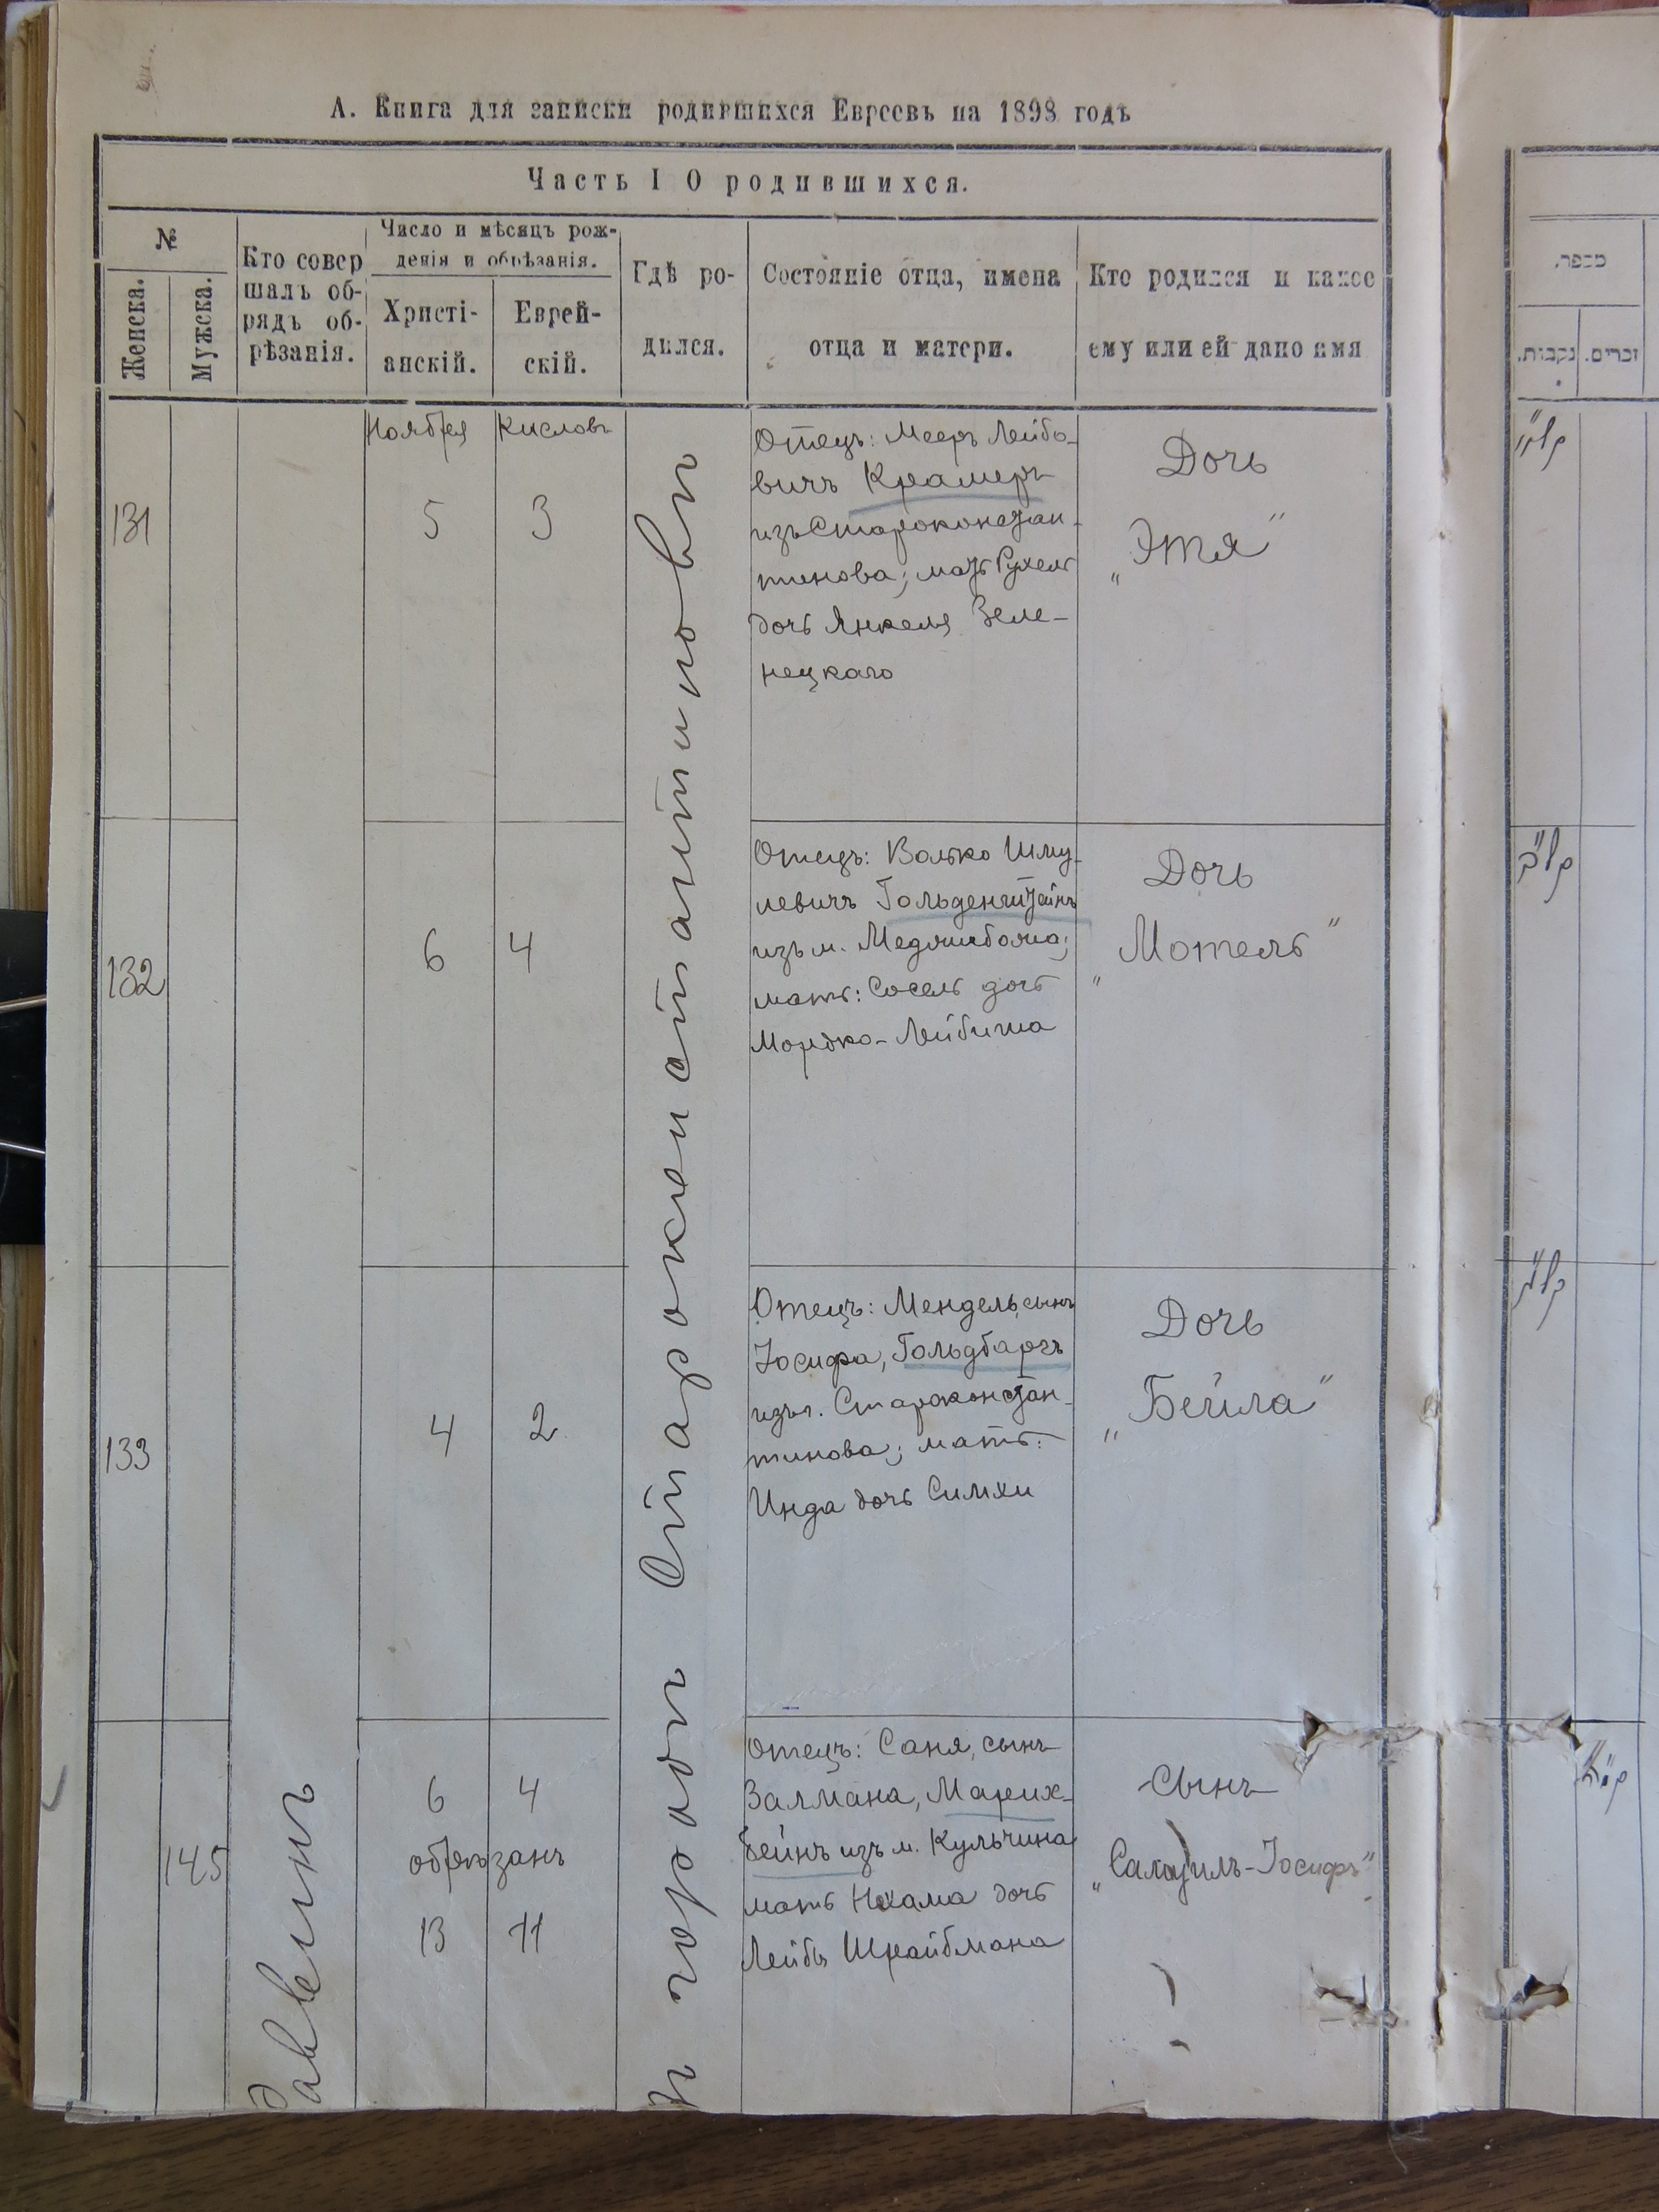 А. Книга для записки родившихся Евреевъ на 1898 годъ
Часть I О родившихся.
№
Женска.
Мужска.
Кто совер
шалъ об-
рядъ об-
рѣзанія.
Число и мѣсяцъ рож-
денія и обрѣзанія.
Христі-
анскій.
Еврей-
скій.
Гдѣ ро-
дился.
Состояніе отца, имена
отца и матери.
Кто родился и какое
ему или ей дано имя
מספר.
נקבות.
זכרים.
Ноября
Кисловъ
131
5
3
Отецъ: Мееръ Лейбо-
вичъ Крамеръ
изъ Староконстан-
тинова; мать Рухель
дочь Янкеля Зеле-
нецкаго
Дочь
„Этя"
קל״א
132
6
4
Отецъ: Волько Шму-
левичъ Гольденштейнъ
изъ м. Меджибожа;
мать: Сосель дочь
Мордко-Лейбиша
Дочь
„Мотель"
קל״ב
133
4
2
Отецъ: Мендель, сынъ
Іосифа, Гольдбаргъ
изъ г. Староконстан-
тинова; мать:
Инда дочь Симхи
Дочь
„Бейла"
קל״ג
145
6
4
обрѣзанъ
13
11
Отецъ: Саня, сынъ
Залмана, Марих-
бейнъ изъ м. Кульчина
мать Нехама дочь
Лейбы Шрайбмана
Сынъ
„Самуилъ-Іосифъ"
קמ״ה
Раввинъ
Въ городѣ Староконстантиновѣ